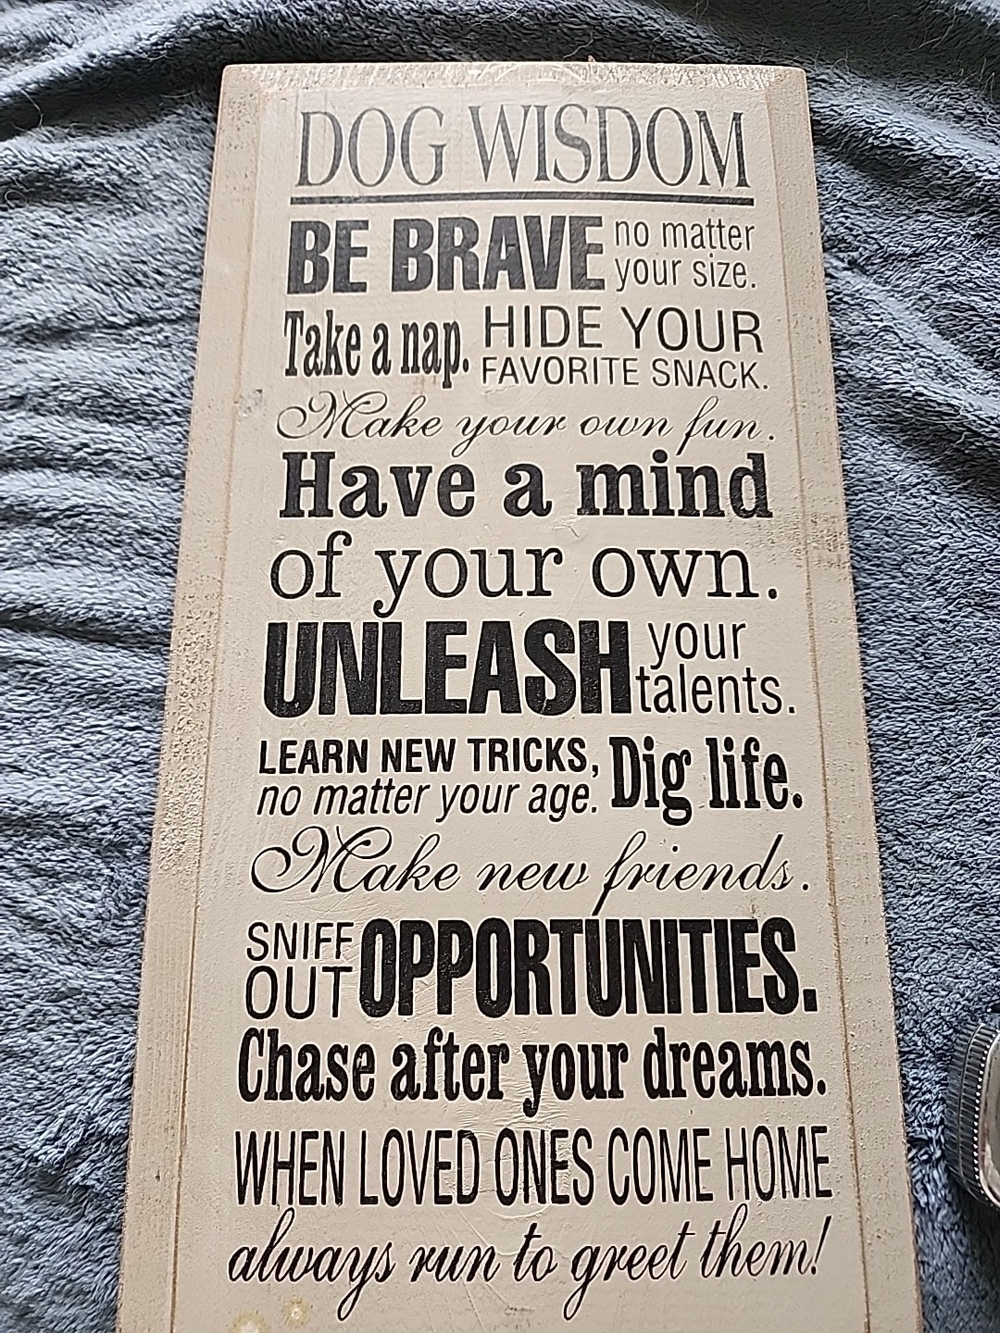 DOG WISDOM
BE BRAVE no matter your size.
Take a nap. HIDE YOUR FAVORITE SNACK.
Make your own fun.
Have a mind
of your own.
UNLEASH your talents.
LEARN NEW TRICKS, no matter your age. Dig life.
Make new friends.
SNIFF OUT OPPORTUNITIES.
Chase after your dreams.
WHEN LOVED ONES COME HOME
always run to greet them!